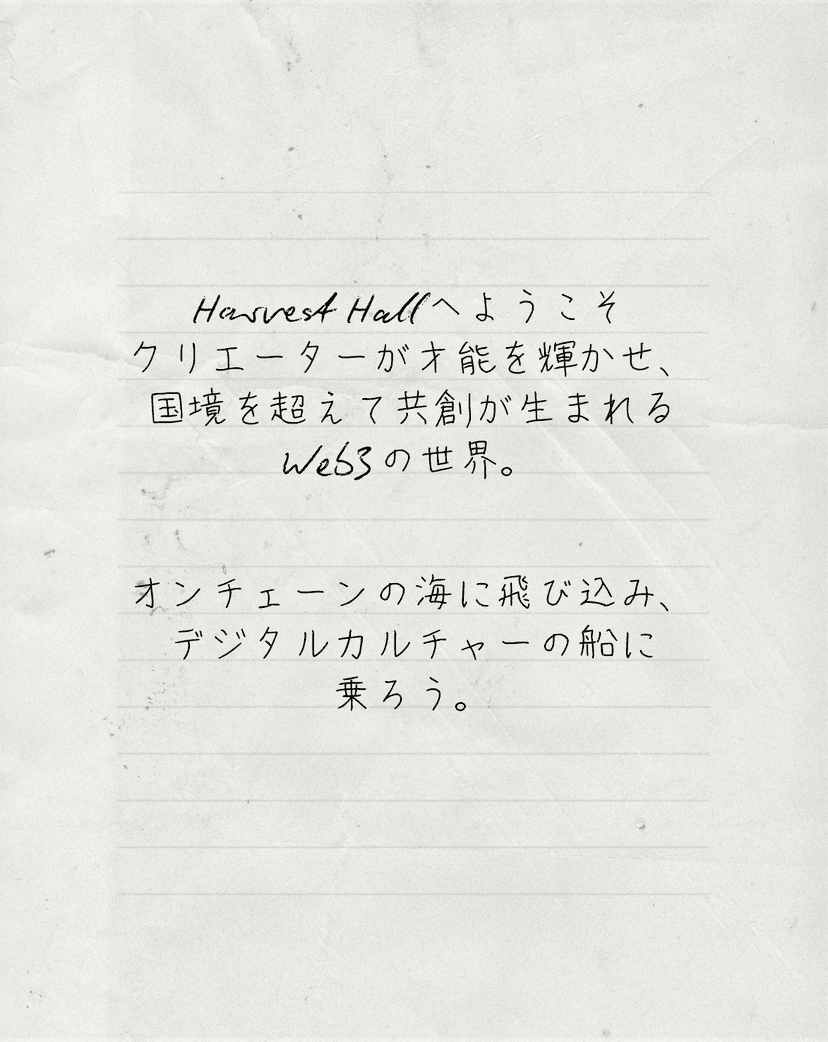 Harvest Hallへようこそ
クリエーターが才能を輝かせ、
国境を超えて共創が生まれる
Web3の世界。
オンチェーンの海に飛び込み、
デジタルカルチャーの船に
乗ろう。